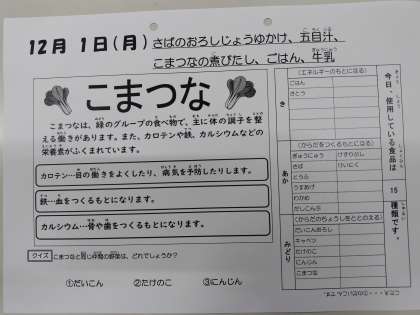 12月 1日(月) さばのおろしじょうゆかけ、五目汁、
こまつなの煮びたし、ごはん、牛乳
こまつな
こまつなは、緑のグループの食べ物で、主に体の調子を整
える働きがあります。また、カロテンや鉄、カルシウムなどの
栄養素がふくまれています。
カロテン…目の働きをよくしたり、病気を予防したりします。
鉄…血をつくるもとになります。
カルシウム…骨や歯をつくるもとになります。
クイズ こまつなと同じ仲間の野菜は、どれでしょうか?
①だいこん ②たけのこ ③にんじん
今日、使用している食品は 15 種類です。
き
(エネルギーのもとになる)
ごはん
さとう
あか
(からだをつくるもとになる)
ぎゅうにゅう けずりぶし
さば けいにく
とうふ
うずらまめ
わかめ
だしこんぶ
みどり
(からだのちょうしをととのえる)
だいこんおろし
キャベツ
たけのこ
にんじん
こまつな